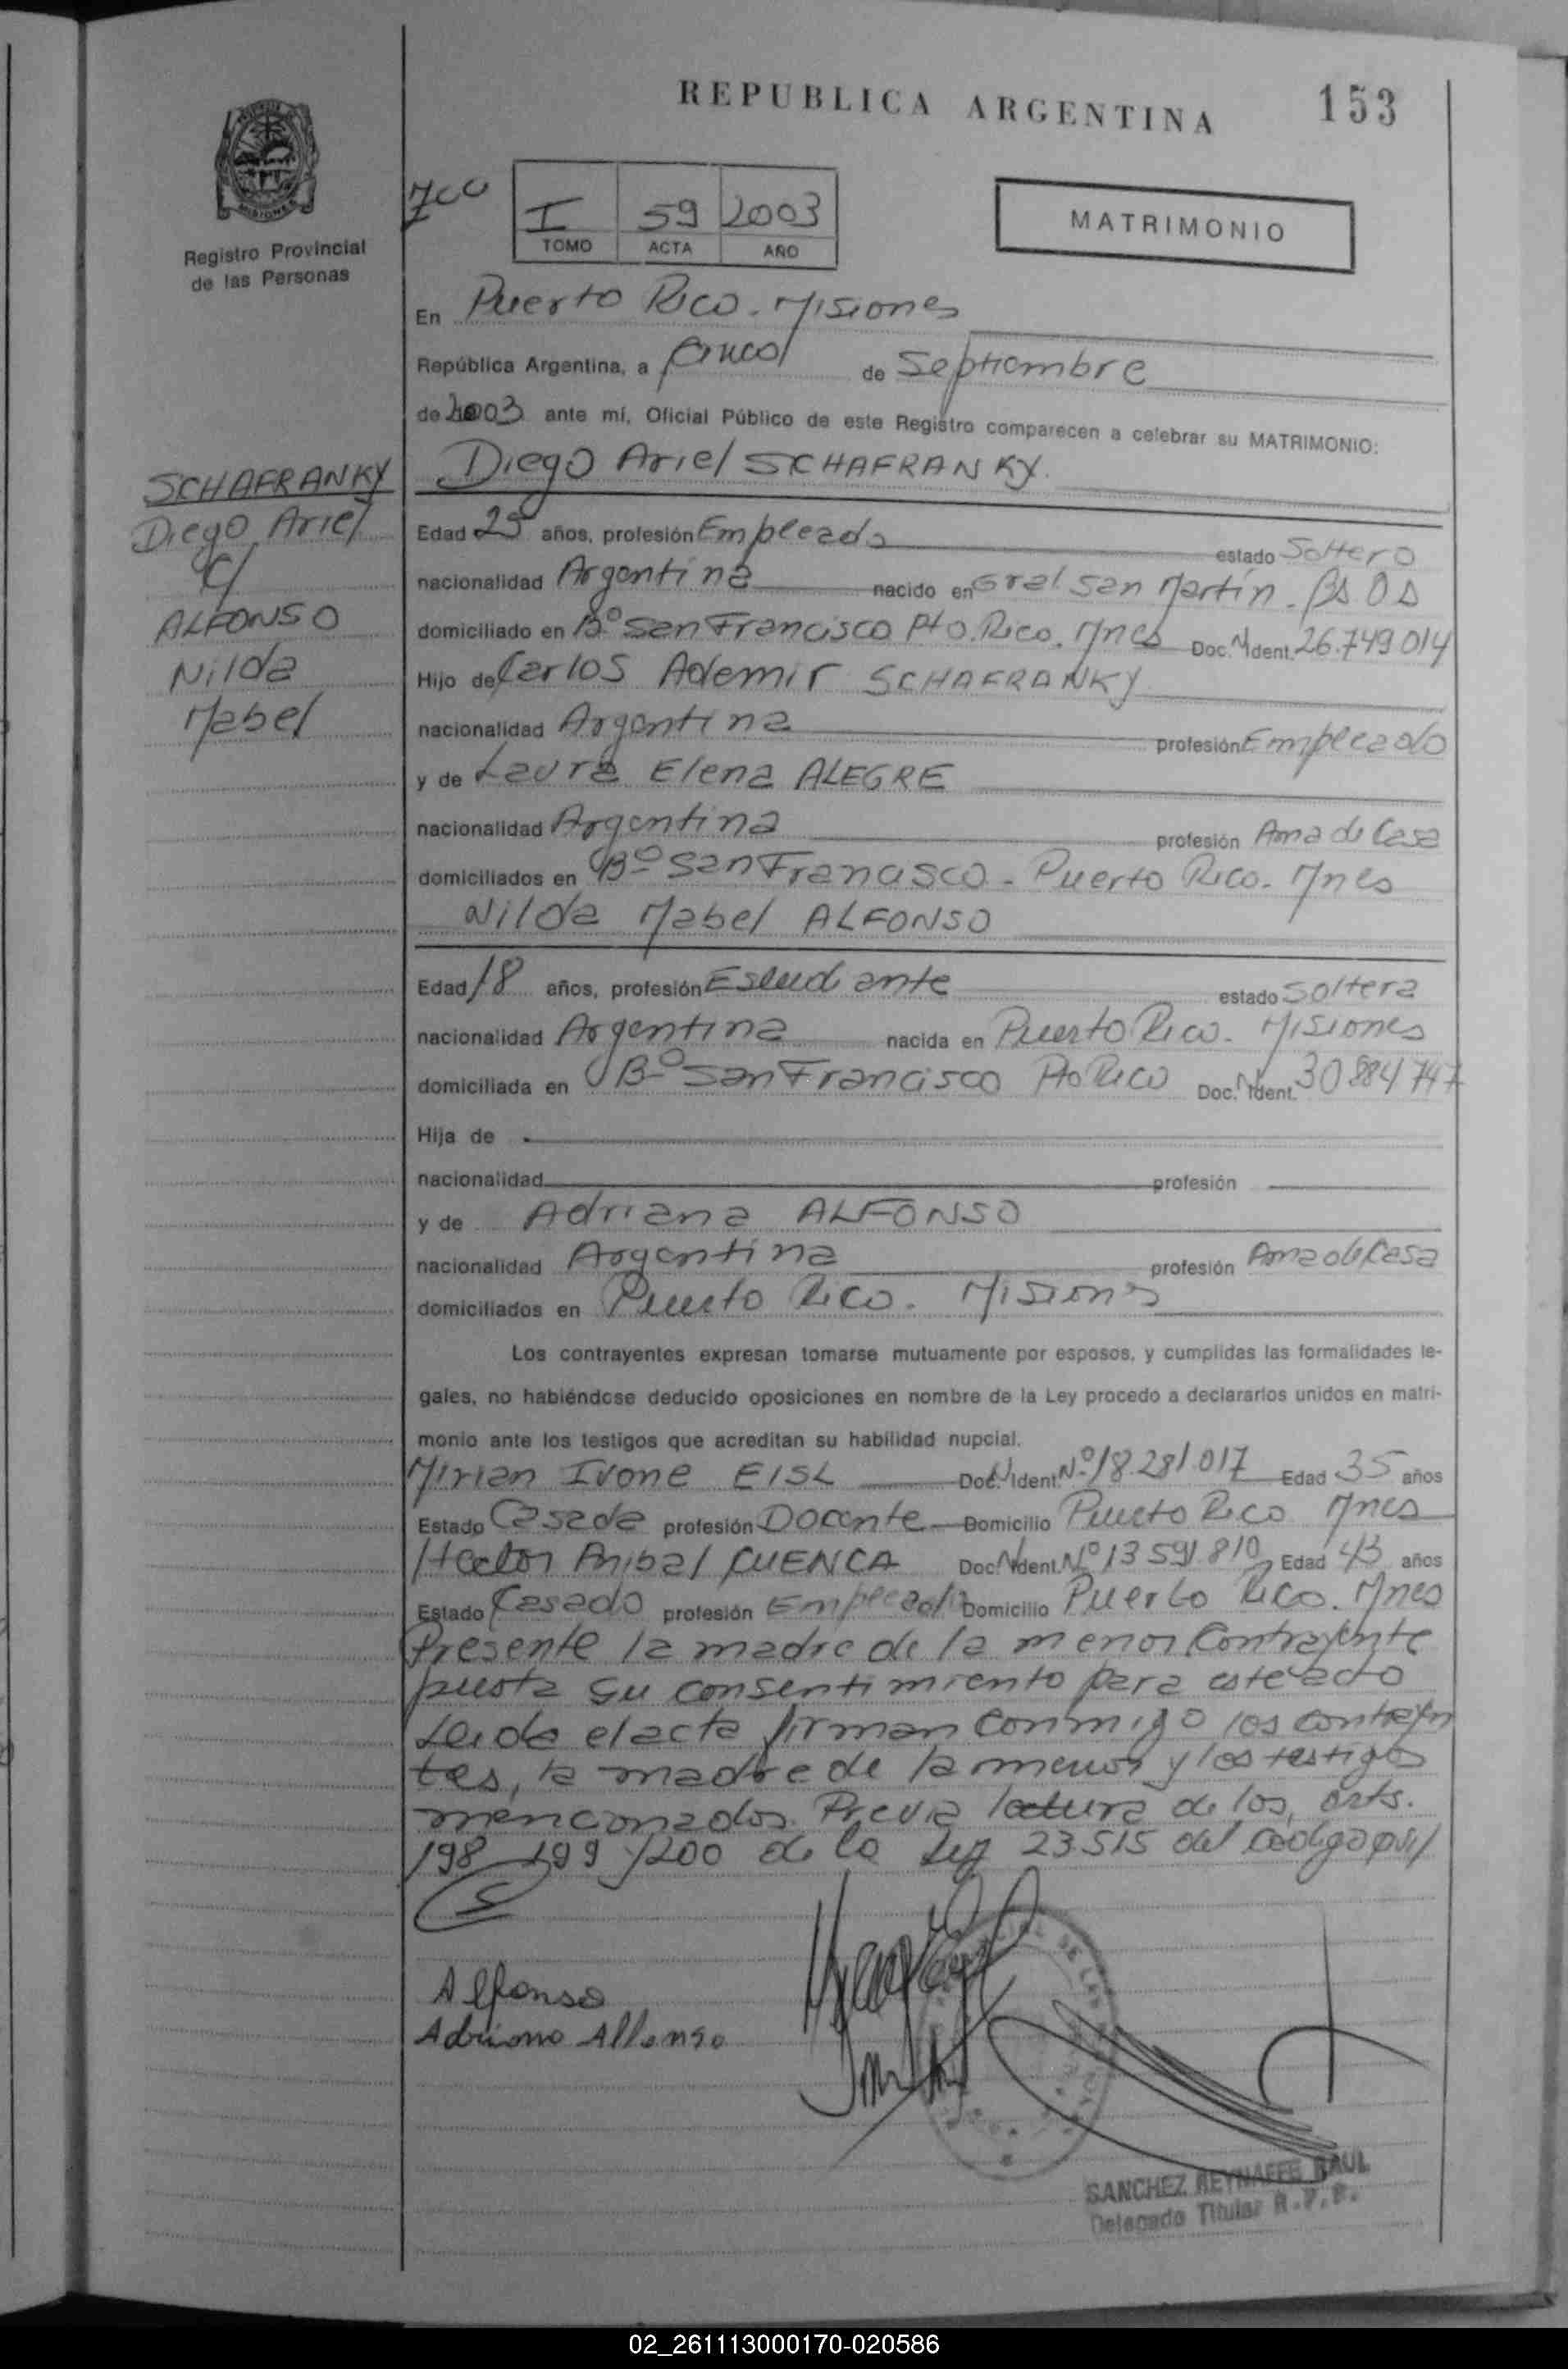 REPUBLICA ARGENTINA
153
Registro Provincial
de las Personas
700
I 59 2003
TOMO ACTA AÑO
MATRIMONIO
En Puerto Rico. Misiones
República Argentina, a Cinco de Septiembre
de 2003 ante mí, Oficial Público de este Registro comparecen a celebrar su MATRIMONIO:
Diego Ariel SCHAFRANKY.
SCHAFRANKY
Diego Ariel
c/
ALFONSO
Nilda
Mabel
Edad 25 años, profesión Empleado estado Soltero
nacionalidad Argentina nacido en Gral San Martín. Bs As
domiciliado en Bº San Francisco Pto. Rico. Mnes Doc. N Ident. 26.749.014
Hijo de Carlos Ademir SCHAFRANKY
nacionalidad Argentina profesión Empleado
y de Laura Elena ALEGRE
nacionalidad Argentina profesión Ama de Casa
domiciliados en Bº San Francisco - Puerto Rico. Mnes
Nilda Mabel ALFONSO
Edad 18 años, profesión Estudiante estado Soltera
nacionalidad Argentina nacida en Puerto Rico. Misiones
domiciliada en Bº San Francisco Pto Rico Doc. N Ident. 30884747
Hija de
nacionalidad profesión
y de Adriana ALFONSO
nacionalidad Argentina profesión Ama de Casa
domiciliados en Puerto Rico. Misiones
Los contrayentes expresan tomarse mutuamente por esposos, y cumplidas las formalidades le-
gales, no habiéndose deducido oposiciones en nombre de la Ley procedo a declararlos unidos en matri-
monio ante los testigos que acreditan su habilidad nupcial.
Mirian Ivone EISL Doc. N Ident. Nº 18.281.017 Edad 35 años
Estado Casada profesión Docente Domicilio Puerto Rico Mnes
Hector Anibal CUENCA Doc. N Ident. Nº 13591810 Edad 43 años
Estado Casado profesión Empleado Domicilio Puerto Rico. Mnes
Presente la madre de la menor Contrayente
puesta su consentimiento para este acto
Leida el acta firman conmigo los contrayen
tes, la madre de la menor y los testigos
mencionados. Previa lectura de los, arts.
198-199 y 200 de la Ley 23.515 del codigo civil
Alfonso
Adriana Alfonso
SANCHEZ REYNAFFE RAUL
Delegado Titular R.P.P.
02_261113000170-020586